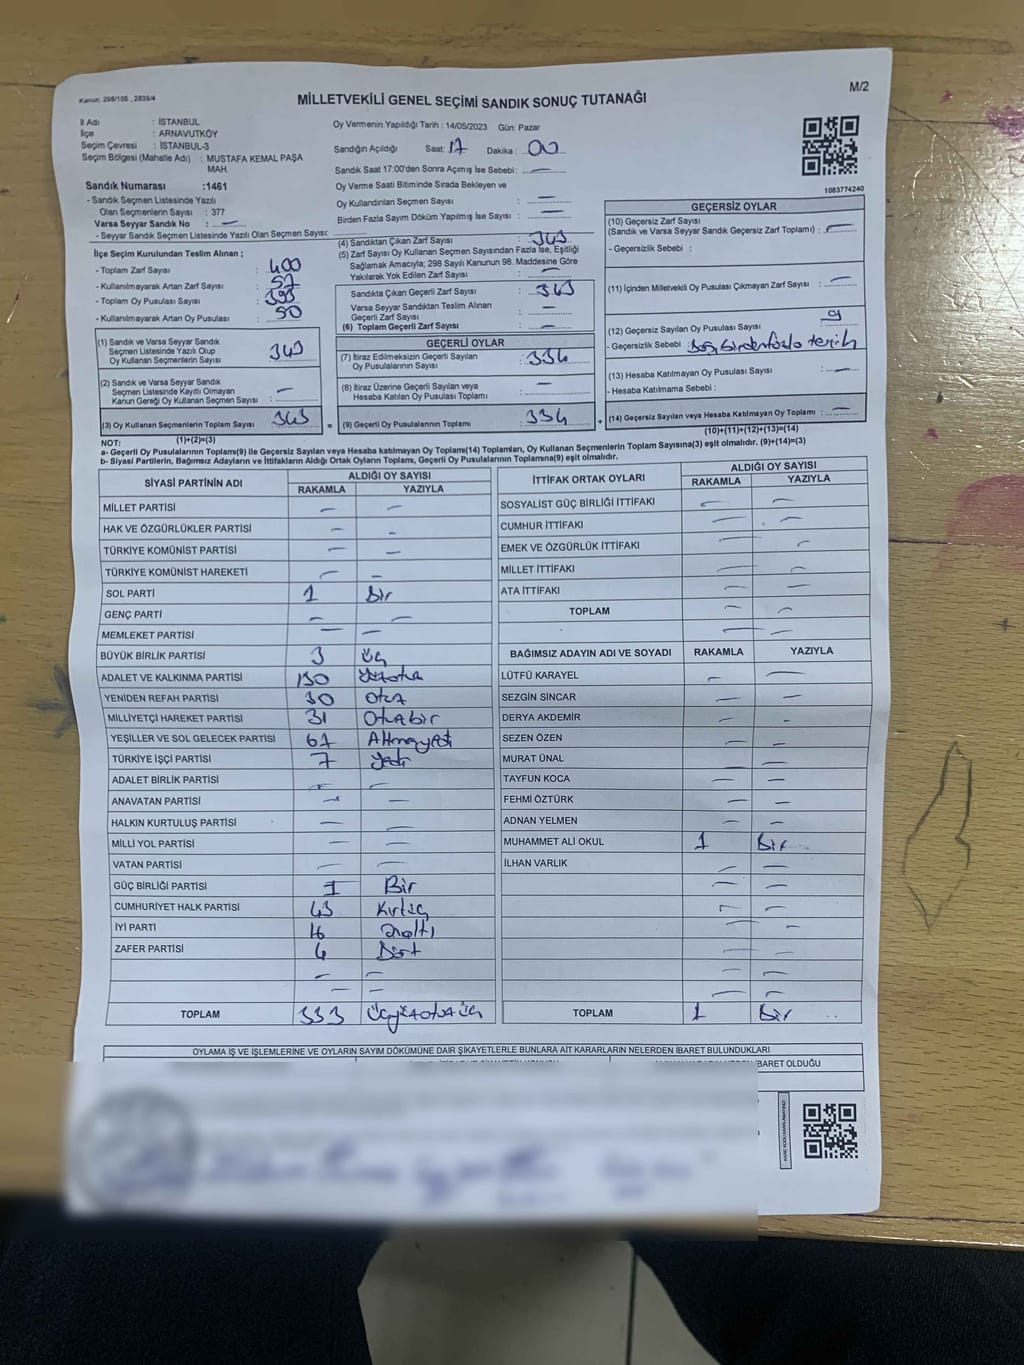 Kanun: 298/105 , 2839/4
M/2
MİLLETVEKİLİ GENEL SEÇİMİ SANDIK SONUÇ TUTANAĞI
İl Adı : İSTANBUL
İlçe : ARNAVUTKÖY
Seçim Çevresi : İSTANBUL-3
Seçim Bölgesi (Mahalle Adı) : MUSTAFA KEMAL PAŞA
MAH.
Sandık Numarası :1461
- Sandık Seçmen Listesinde Yazılı
Olan Seçmenlerin Sayısı : 377
Varsa Seyyar Sandık No : —
- Seyyar Sandık Seçmen Listesinde Yazılı Olan Seçmen Sayısı:
İlçe Seçim Kurulundan Teslim Alınan ;
- Toplam Zarf Sayısı : 400
- Kullanılmayarak Artan Zarf Sayısı : 57
- Toplam Oy Pusulası Sayısı : 393
- Kullanılmayarak Artan Oy Pusulası : 50
(1) Sandık ve Varsa Seyyar Sandık
Seçmen Listesinde Yazılı Olup
Oy Kullanan Seçmenlerin Sayısı : 343
(2) Sandık ve Varsa Seyyar Sandık
Seçmen Listesinde Kayıtlı Olmayan
Kanun Gereği Oy Kullanan Seçmen Sayısı : —
(3) Oy Kullanan Seçmenlerin Toplam Sayısı : 343
(1)+(2)=(3)
Oy Vermenin Yapıldığı Tarih : 14/05/2023 Gün: Pazar
Sandığın Açıldığı Saat: 17 Dakika : 00
Sandık Saat 17:00'den Sonra Açımış İse Sebebi: —
Oy Verme Saati Bitiminde Sırada Bekleyen ve
Oy Kullandırılan Seçmen Sayısı : —
Birden Fazla Sayım Döküm Yapılmış İse Sayısı : —
(4) Sandıktan Çıkan Zarf Sayısı : 343
(5) Zarf Sayısı Oy Kullanan Seçmen Sayısından Fazla İse, Eşitliği
Sağlamak Amacıyla; 298 Sayılı Kanunun 98. Maddesine Göre
Yakılarak Yok Edilen Zarf Sayısı : —
Sandıkta Çıkan Geçerli Zarf Sayısı : 343
Varsa Seyyar Sandıktan Teslim Alınan
Geçerli Zarf Sayısı : —
(6) Toplam Geçerli Zarf Sayısı : —
GEÇERLİ OYLAR
(7) İtiraz Edilmeksizin Geçerli Sayılan
Oy Pusulalarının Sayısı : 334
(8) İtiraz Üzerine Geçerli Sayılan veya
Hesaba Katılan Oy Pusulası Toplamı : —
= (9) Geçerli Oy Pusulalarının Toplamı : 334 +
1083774240
GEÇERSİZ OYLAR
(10) Geçersiz Zarf Sayısı
(Sandık ve Varsa Seyyar Sandık Geçersiz Zarf Toplamı) : —
- Geçersizlik Sebebi :
(11) İçinden Milletvekili Oy Pusulası Çıkmayan Zarf Sayısı : —
(12) Geçersiz Sayılan Oy Pusulası Sayısı : 9
- Geçersizlik Sebebi : birden fazla tercih
(13) Hesaba Katılmayan Oy Pusulası Sayısı : —
- Hesaba Katılmama Sebebi :
(14) Geçersiz Sayılan veya Hesaba Katılmayan Oy Toplamı : —
(10)+(11)+(12)+(13)=(14)
NOT:
a- Geçerli Oy Pusulalarının Toplamı(9) ile Geçersiz Sayılan veya Hesaba katılmayan Oy Toplamı(14) Toplamları, Oy Kullanan Seçmenlerin Toplam Sayısına(3) eşit olmalıdır. (9)+(14)=(3)
b- Siyasi Partilerin, Bağımsız Adayların ve İttifakların Aldığı Ortak Oyların Toplamı, Geçerli Oy Pusulalarının Toplamına(9) eşit olmalıdır.
SİYASİ PARTİNİN ADI ALDIĞI OY SAYISI
RAKAMLA YAZIYLA
MİLLET PARTİSİ — —
HAK VE ÖZGÜRLÜKLER PARTİSİ — —
TÜRKİYE KOMÜNİST PARTİSİ — —
TÜRKİYE KOMÜNİST HAREKETİ — —
SOL PARTİ 1 Bir
GENÇ PARTİ — —
MEMLEKET PARTİSİ — —
BÜYÜK BİRLİK PARTİSİ 3 Üç
ADALET VE KALKINMA PARTİSİ 130 Yüzotuz
YENİDEN REFAH PARTİSİ 30 Otuz
MİLLİYETÇİ HAREKET PARTİSİ 31 Otuzbir
YEŞİLLER VE SOL GELECEK PARTİSİ 67 Altmışyedi
TÜRKİYE İŞÇİ PARTİSİ 7 Yedi
ADALET BİRLİK PARTİSİ — —
ANAVATAN PARTİSİ — —
HALKIN KURTULUŞ PARTİSİ — —
MİLLİ YOL PARTİSİ — —
VATAN PARTİSİ — —
GÜÇ BİRLİĞİ PARTİSİ 1 Bir
CUMHURİYET HALK PARTİSİ 43 Kırküç
İYİ PARTİ 16 Onaltı
ZAFER PARTİSİ 4 Dört
— —
— —
TOPLAM 333 Üçyüzotuzüç
İTTİFAK ORTAK OYLARI ALDIĞI OY SAYISI
RAKAMLA YAZIYLA
SOSYALİST GÜÇ BİRLİĞİ İTTİFAKI — —
CUMHUR İTTİFAKI — —
EMEK VE ÖZGÜRLÜK İTTİFAKI — —
MİLLET İTTİFAKI — —
ATA İTTİFAKI — —
TOPLAM — —
— —
BAĞIMSIZ ADAYIN ADI VE SOYADI RAKAMLA YAZIYLA
LÜTFÜ KARAYEL — —
SEZGİN SİNCAR — —
DERYA AKDEMİR — —
SEZEN ÖZEN — —
MURAT ÜNAL — —
TAYFUN KOCA — —
FEHMİ ÖZTÜRK — —
ADNAN YELMEN — —
MUHAMMET ALİ OKUL 1 Bir
İLHAN VARLIK — —
— —
— —
— —
— —
— —
— —
TOPLAM 1 Bir
OYLAMA İŞ VE İŞLEMLERİNE VE OYLARIN SAYIM DÖKÜMÜNE DAİR ŞİKAYETLERLE BUNLARA AİT KARARLARIN NELERDEN İBARET BULUNDUKLARI
İBARET OLDUĞU